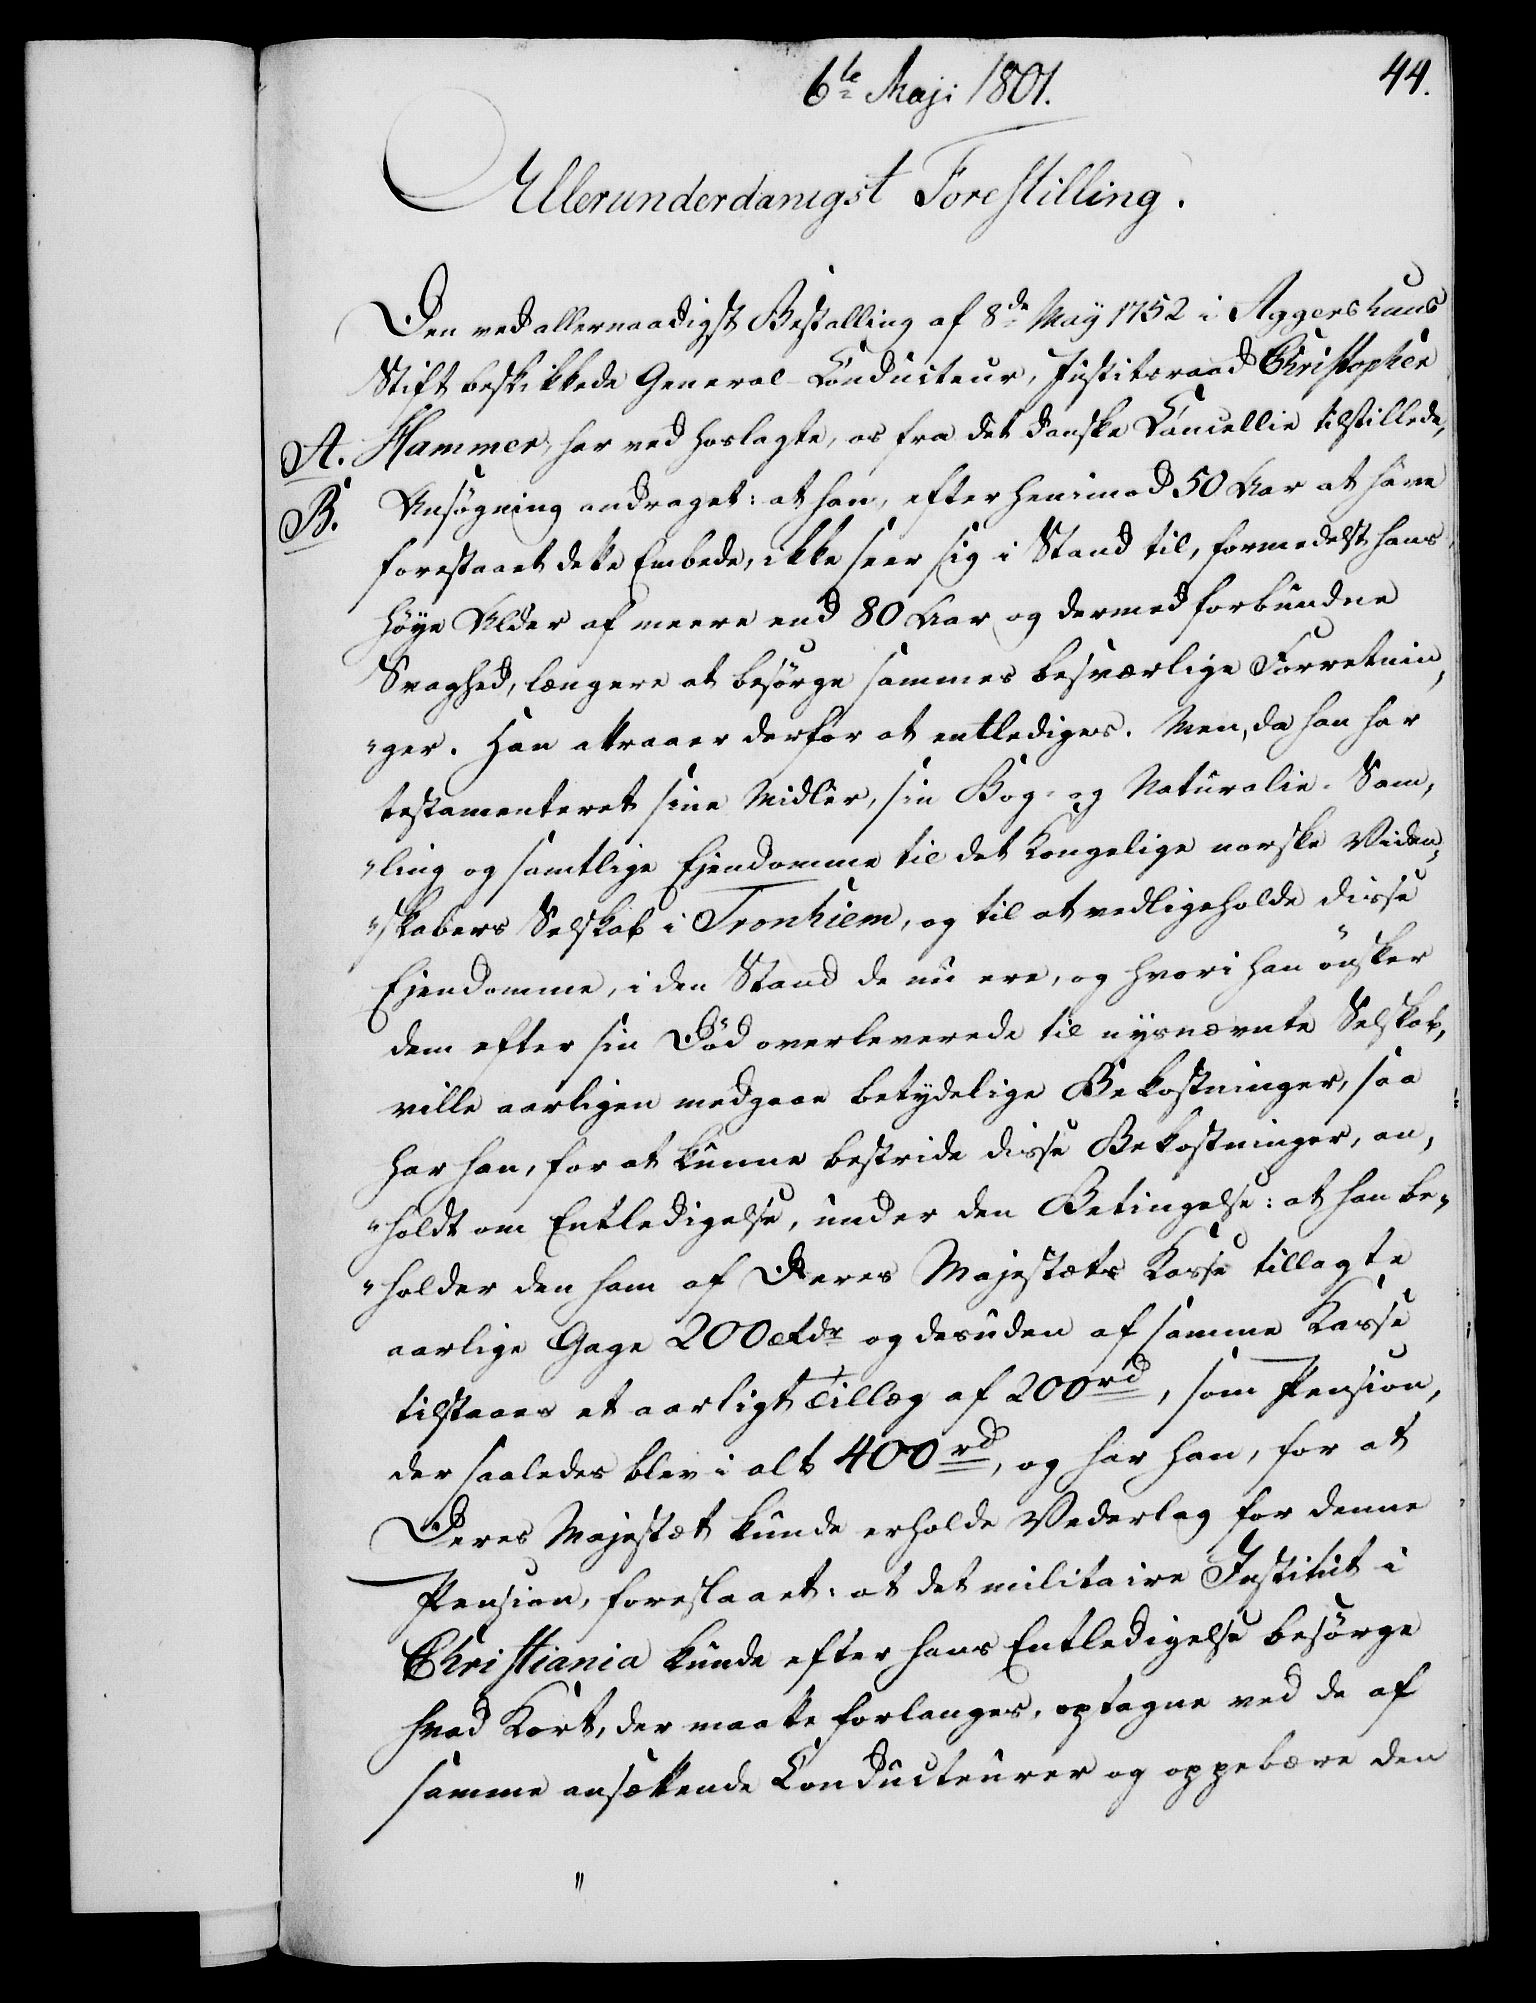 6te Maji 1801.
44.
Allerunderdanigst Forestilling.
Den ved allernaadigst Bestalling af 8de May 1752 i Aggershuus
Stift beskikkede General-Conducteur, Justitsraad Christopher
A. Hammer, har ved hoslagte, os fra det danske Cancellie tilstillede,
B. Ansøgning andraget: at han, efter henimod 50 Aar at have
forestaaet dette Embede, ikke seer sig i Stand til, formedelst hans
høye Alder af meere end 80 Aar og dermed forbundne
Svaghed, længere at besørge sammes besværlige Forretnin,
"ger. Han attraaer derfor at entlediges. Men, da han har
testamenteret sine Midler, sin Bog- og Naturalie-Sam,
"ling og samtlige Ejendomme til det Kongelige norske Viden,
"skabers Selskab i Tronhiem, og til at vedligeholde disse
Ejendomme, i den Stand de nu ere, og hvori han ønsker
dem efter sin Død overleverede til nysnævnte Selskab,
ville aarligen medgaae betydelige Bekostninger, saa
har han, for at kunne bestride disse Bekostninger, an,
"holdt om Entledigelse, under den Betingelse: at han be,
"holder den ham af Deres Majestæts Kasse tillagte
aarlige Gage 200 Rdr og desuden af samme Kasse
tilstaaes et aarligt Tillæg af 200 rd, som Pension,
der saaledes blev i alt 400 rd, og har han, for at
Deres Majestæt kunde erholde Vederlag for denne
Pension, foreslaaet: at det militaire Institut i
Christiania kunde efter hans Entledigelse besørge
hvad Kort, der maatte forlanges, optagne ved de af
samme ansættende Conducteurer og oppebære den
"